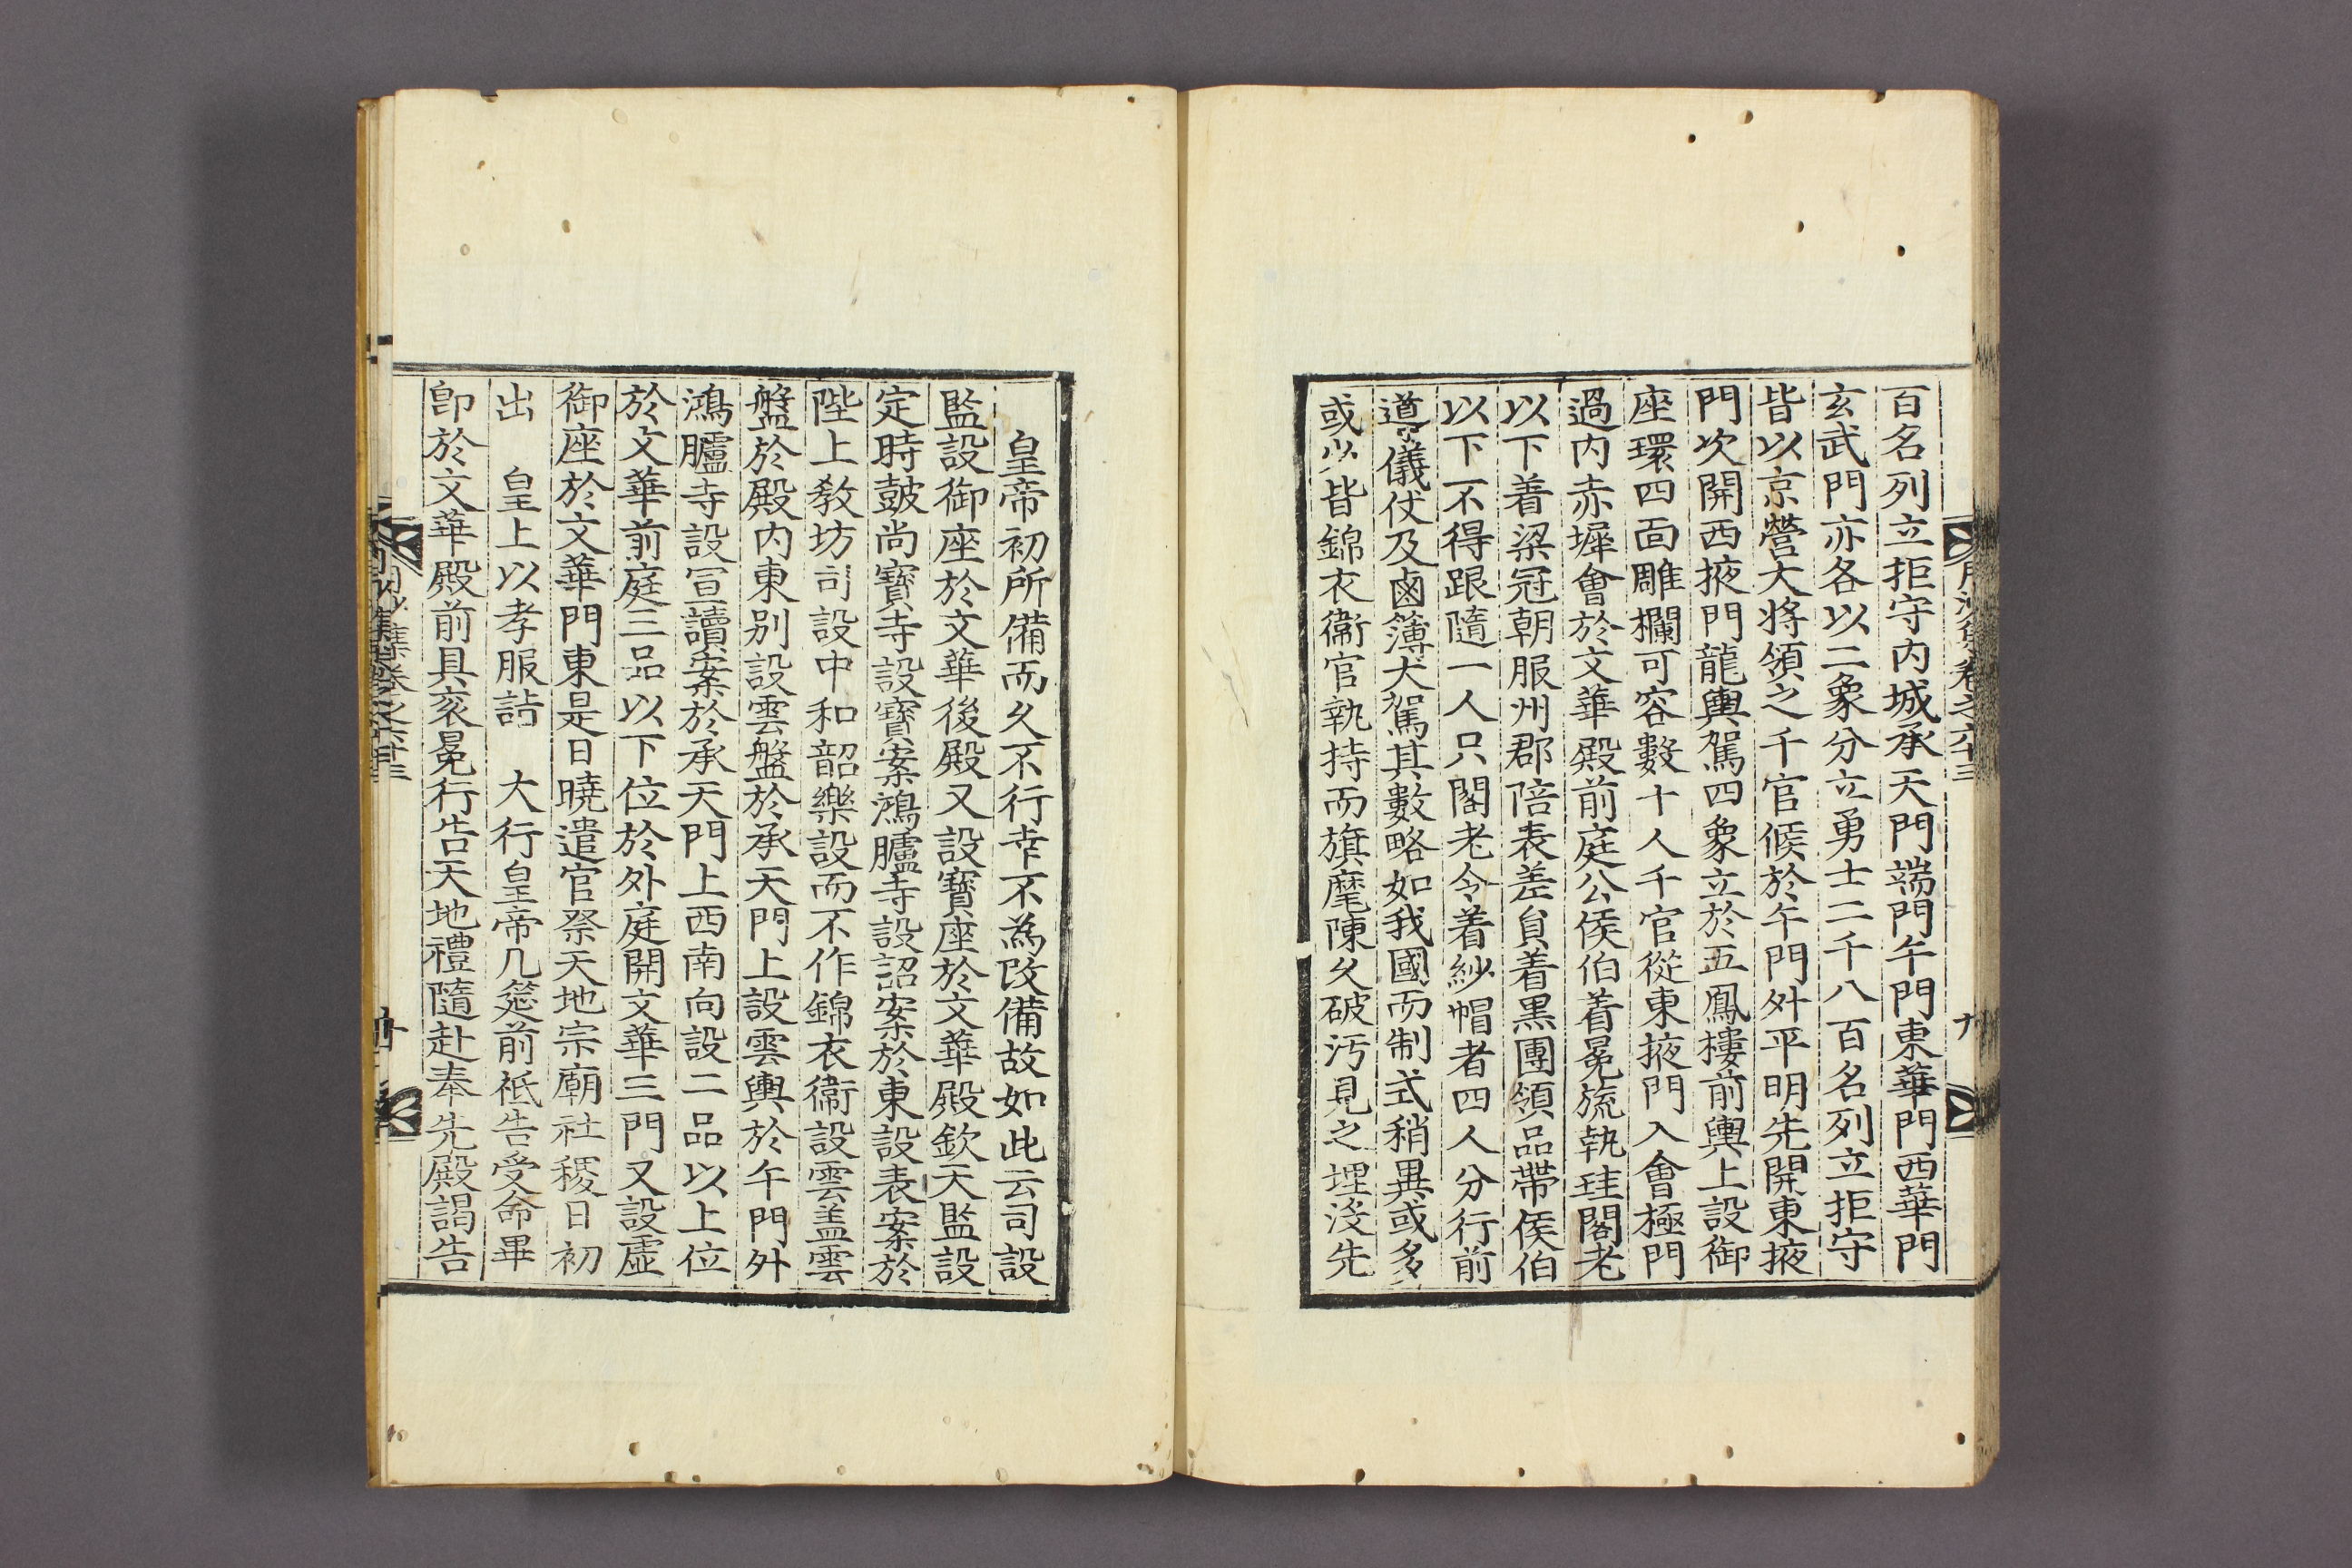 百名列立拒守内城承天門端門午門東華門西華門
玄武門亦各以二象分立勇士二千八百名列立拒守
皆以京營大將領之千官候於午門外平明先開東掖
門次開西掖門龍輿駕四象立於五鳳樓前輿上設御
座環四面雕欄可容數十人千官從東掖門入會極門
過内赤墀會於文華殿前庭公侯伯着冕旒執珪閣老
以下着梁冠朝服州郡陪表差員着黑團領品帶侯伯
以下不得跟隨一人只閣老令着紗帽者四人分行前
導儀仗及鹵簿大駕其數略如我國而制式稍異或多
或少皆錦衣衛官執持而旗麾陳久破汚見之埋沒先
皇帝初所備而久不行幸不爲改備故如此云司設
監設御座於文華後殿又設寶座於文華殿欽天監設
定時鼓尚寶寺設寶案鴻臚寺設詔案於東設表案於
陛上教坊司設中和韶樂設而不作錦衣衛設雲盖雲
盤於殿内東別設雲盤於承天門上設雲輿於午門外
鴻臚寺設宣讀案於承天門上西南向設二品以上位
於文華前庭三品以下位於外庭開文華三門又設虛
御座於文華門東是日曉遣官祭天地宗廟社稷日初
出 皇上以孝服詣 大行皇帝几筵前祗告受命畢
即於文華殿前具衮冕行告天地禮隨赴奉先殿謁告